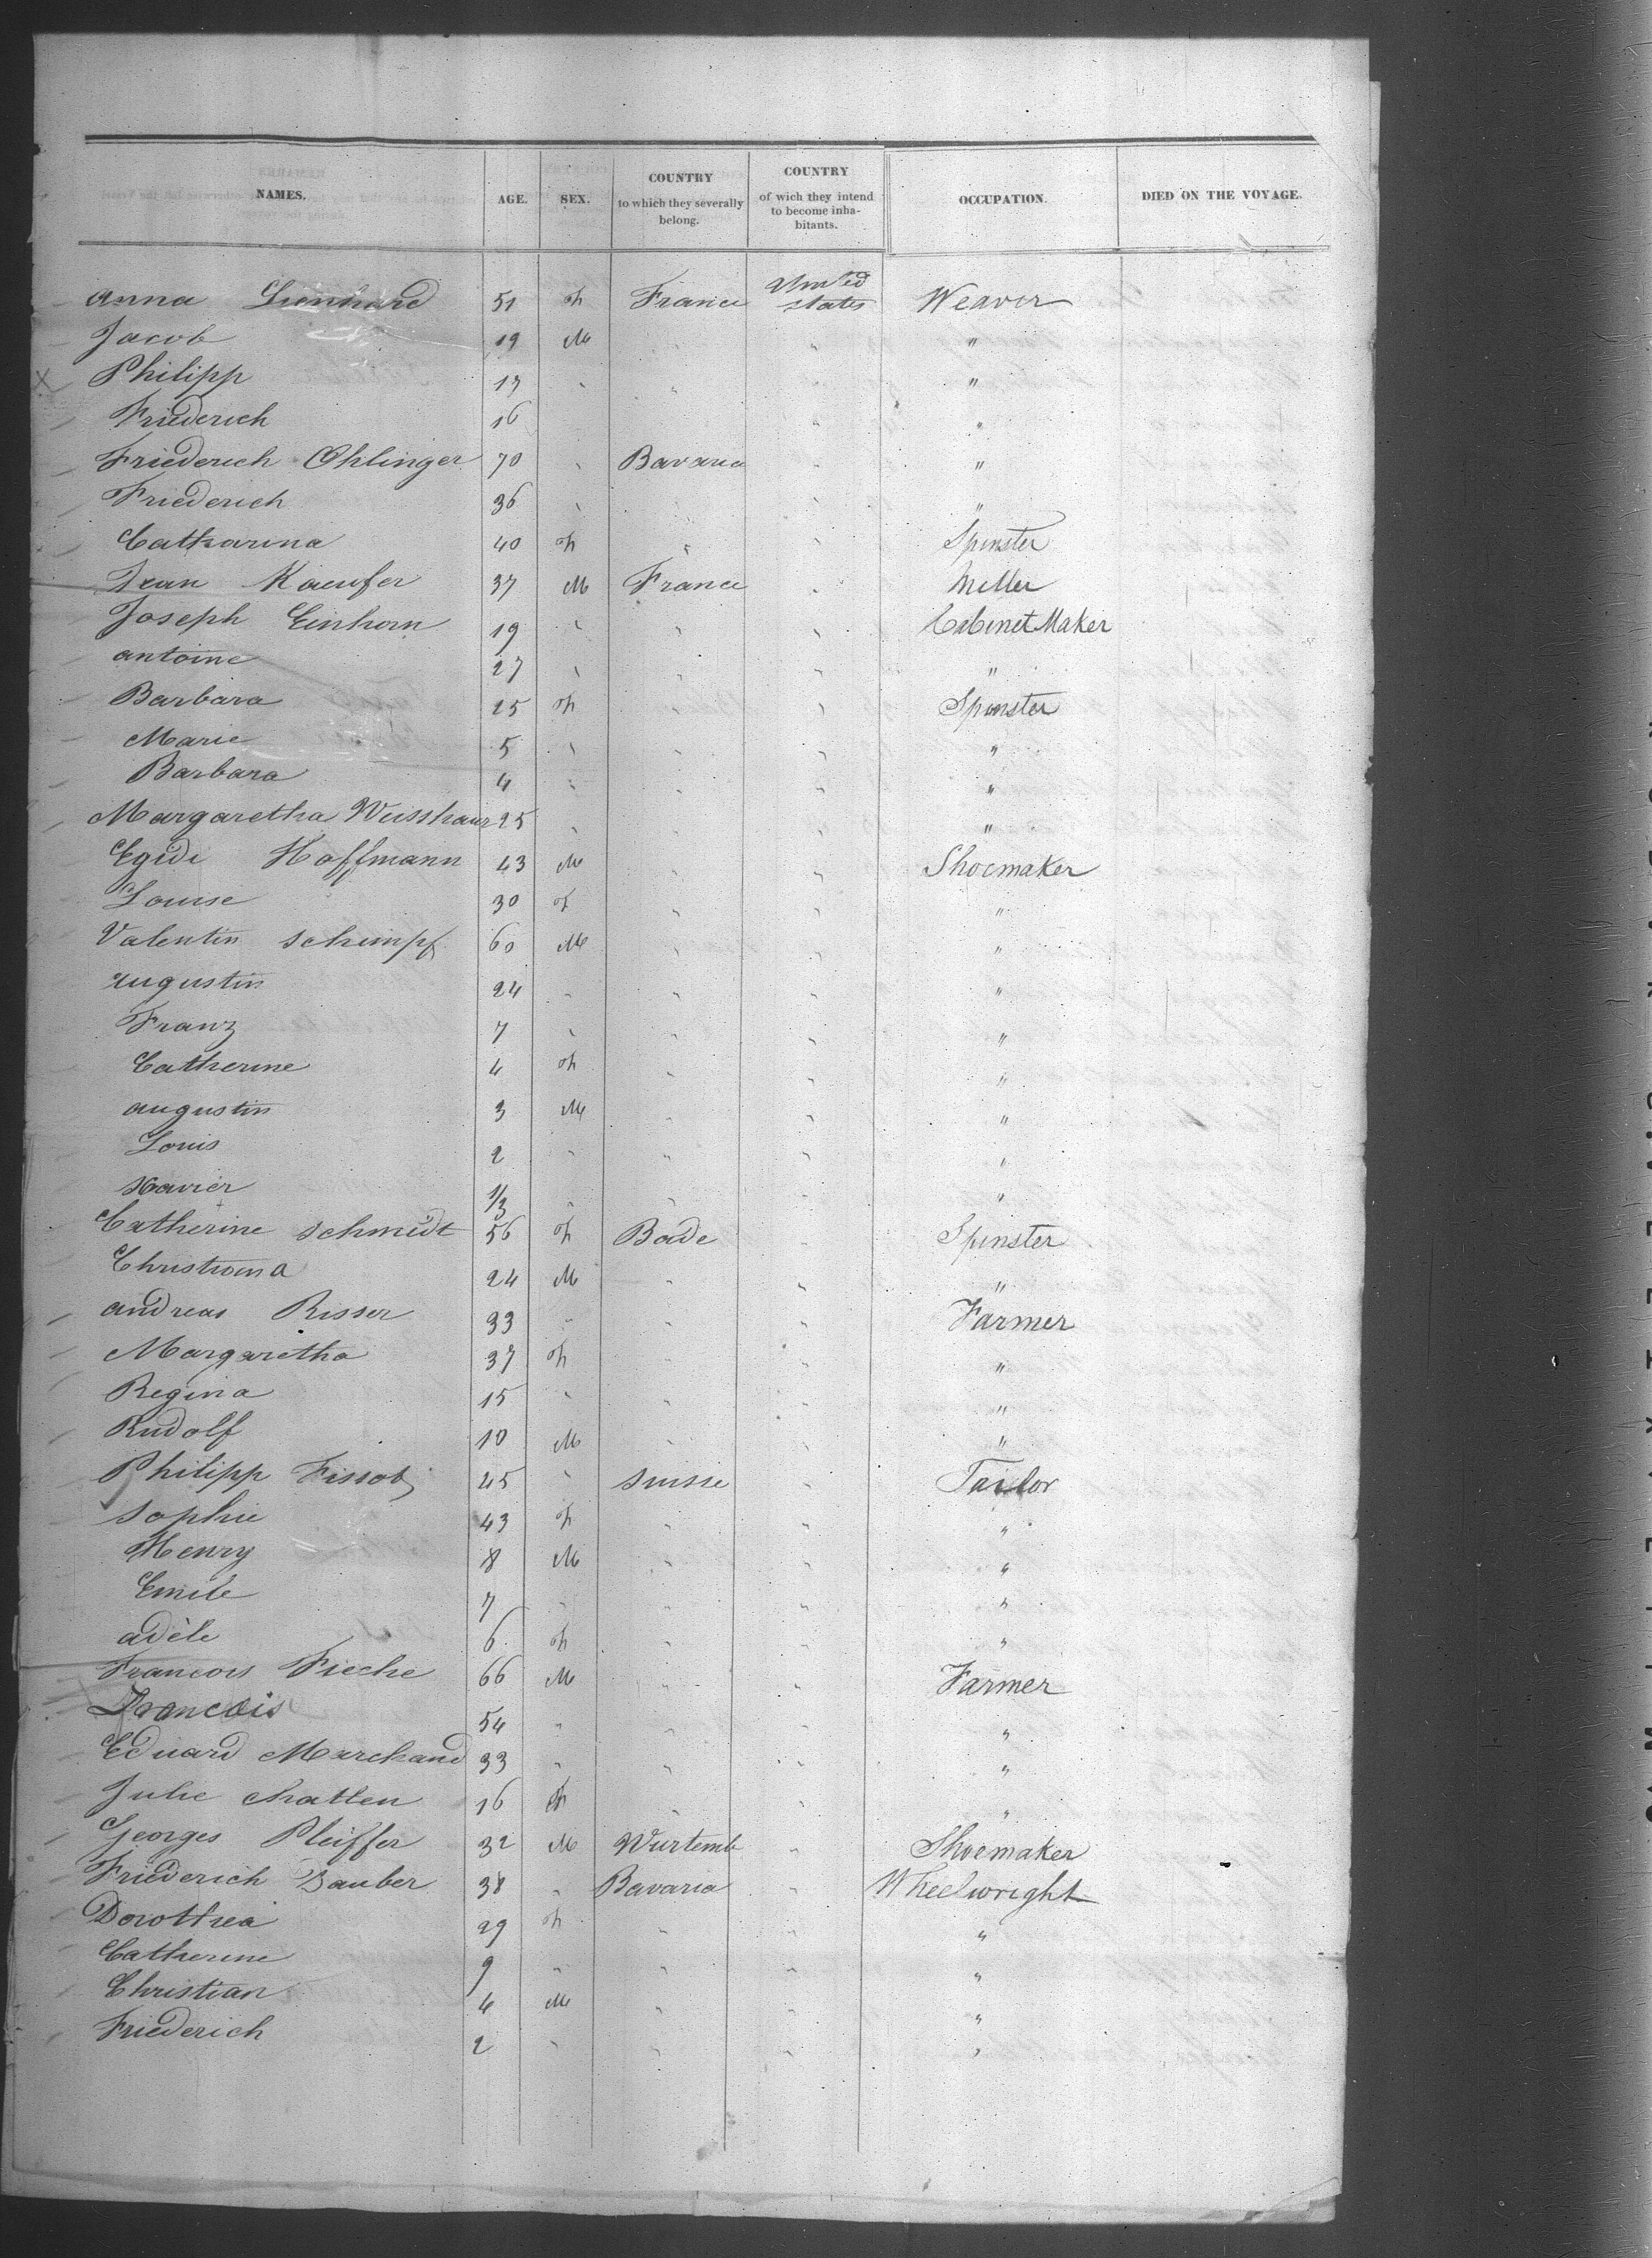 NAMES. AGE. SEX. COUNTRY to which they severally belong. COUNTRY of wich they intend to become inhabitants. OCCUPATION. DIED ON THE VOYAGE.
Anna Lienhard 51 f France United States Weaver
Jacob 19 M " "
Philipp 17 " " "
Friederich 16 " "
Friederich Ohlinger 70 " Bavaria " "
Friederich 36 " " "
Catharina 40 f " " Spinster
Jean Kaeufer 37 M France " Miller
Joseph Einhorn 19 " " " Cabinet Maker
Antoine 27 " " " "
Barbara 25 f " " Spinster
Marie 5 " " " "
Barbara 4 " " " "
Margaretha Weisshaar 25 " " " "
Egidi Hoffmann 43 M " " Shoemaker
Louise 30 f " " "
Valentin Schimpf 60 M " " "
Augustin 24 " " " "
Franz 7 " " " "
Catherine 4 f " " "
Augustin 3 M " " "
Louis 2 " " " "
Xavier 1/3 " " " "
Catherine Schmidt 56 f Bade " Spinster
Christiana 24 M " " "
Andreas Risser 33 " " " Farmer
Margaretha 37 f " " "
Regina 15 " " " "
Rudolf 10 M " " "
Philipp 45 " Suisse " Tailor
Sophie 43 f " " "
Henry 8 M " " "
Emile 7 " " " "
Adèle 6 f " " "
Francois Fieche 66 M " " Farmer
Francois 54 " " " "
Eduard Marchand 33 " " " "
Julie Chatten 16 f " " "
Georges Pleiffer 32 M Wurtemb " Shoemaker
Friederich Dauber 38 " Bavaria " Wheelwright
Dorothea 29 f " " "
Catherine 9 " " " "
Christian 4 M " " "
Friederich 2 " " " "